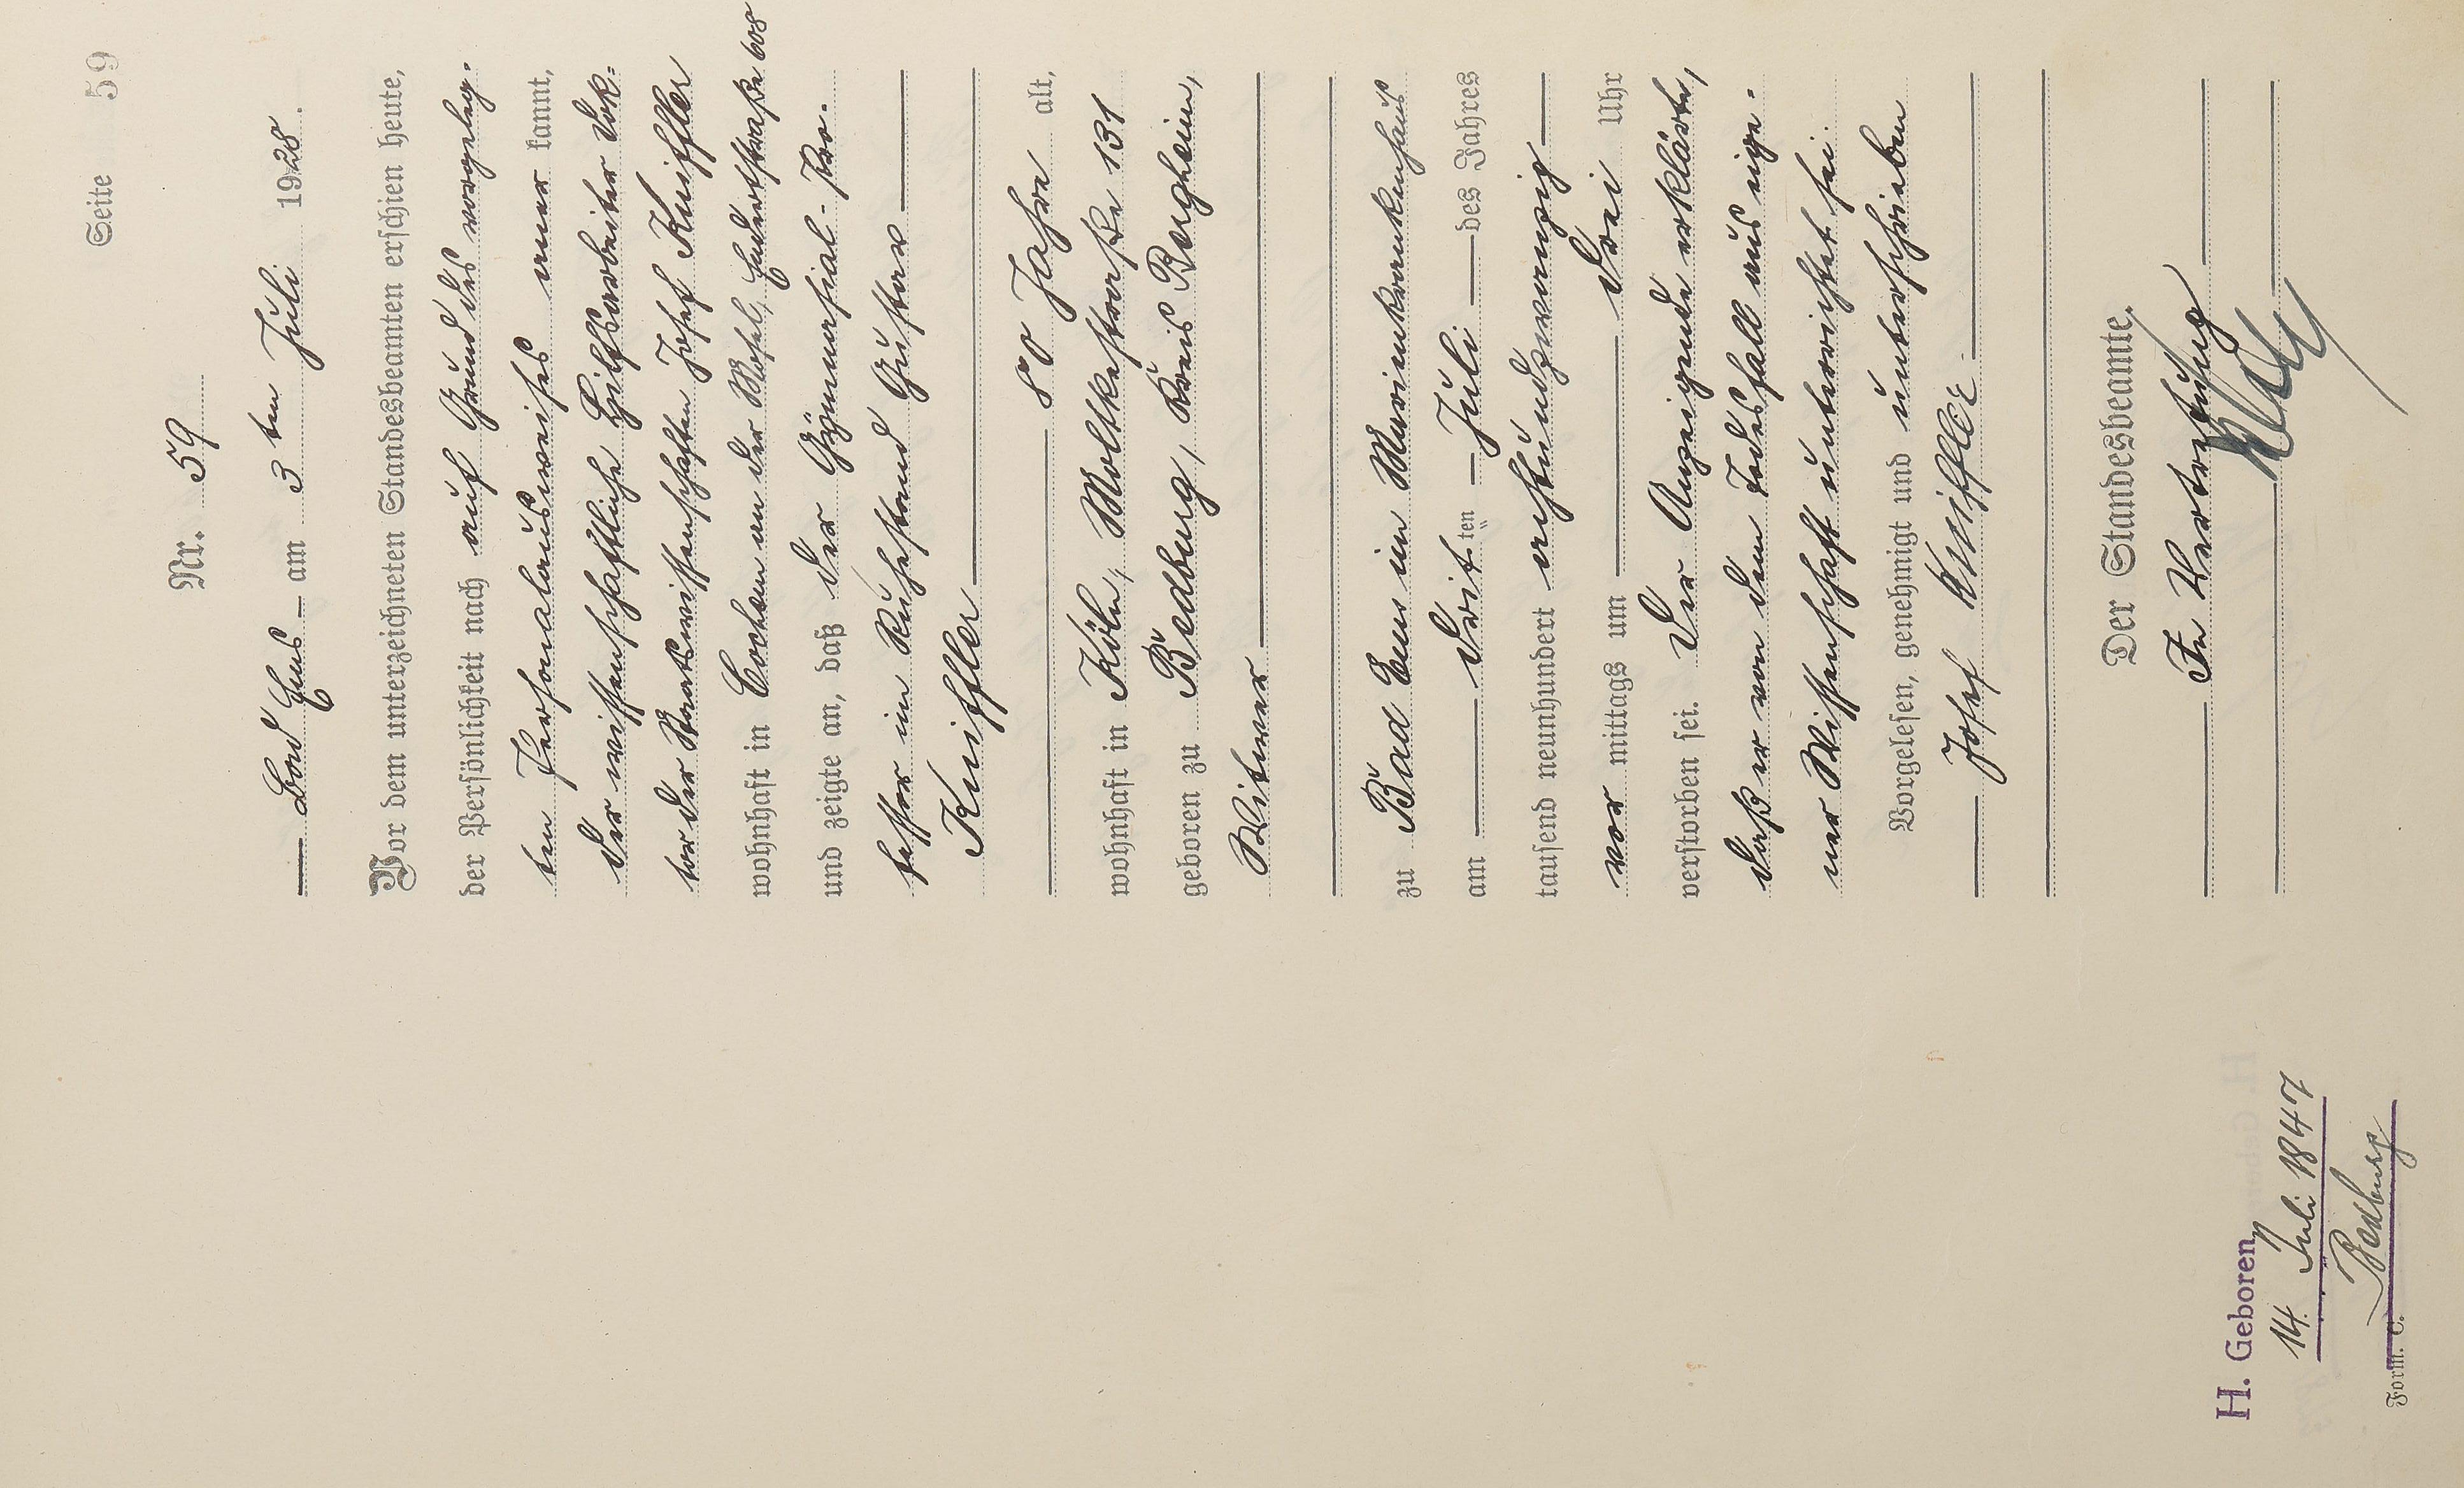 Seite 59
Nr. 59
Bad Ems am 3ten Juli 1928.
Vor dem unterzeichneten Standesbeamten erschien heute,
der Persönlichkeit nach auf Grund des vorgeleg-
ten Personalausweises aner kannt,
der wissenschaftliche Hilfsarbeiter Dok=
tor der Staatswissenschaften Josef Kniffler
wohnhaft in Cochem an der Mosel, Endertstraße 608
und zeigte an, daß der Gymnasial-Pro-
fessor im Ruhestand Gustav
Kniffler
80 Jahre alt,
wohnhaft in Köln, Moltkestraße 131
geboren zu Bedburg, Kreis Bergheim,
Witwer
zu Bad Ems im Marienkrankenhaus
am dritten Juli des Jahres
tausend neunhundert achtundzwanzig
vor mittags um drei Uhr
verstorben sei. Der Anzeigende erklärte,
daß er von dem Todesfall aus eige-
ner Wissenschaft unterrichtet sei.
Vorgelesen, genehmigt und unterschrieben
Josef Kniffler
Der Standesbeamte.
In Vertretung
H. Geboren
14. Juli 1847
Bedburg
Form. C.